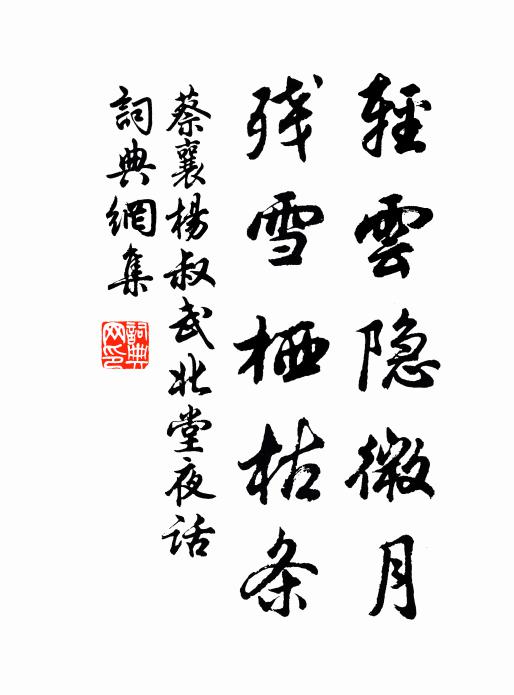 輕雲隐微月
残雪栖枯条
蔡襄楊叔武北堂夜话
詞典網集
詞典網印